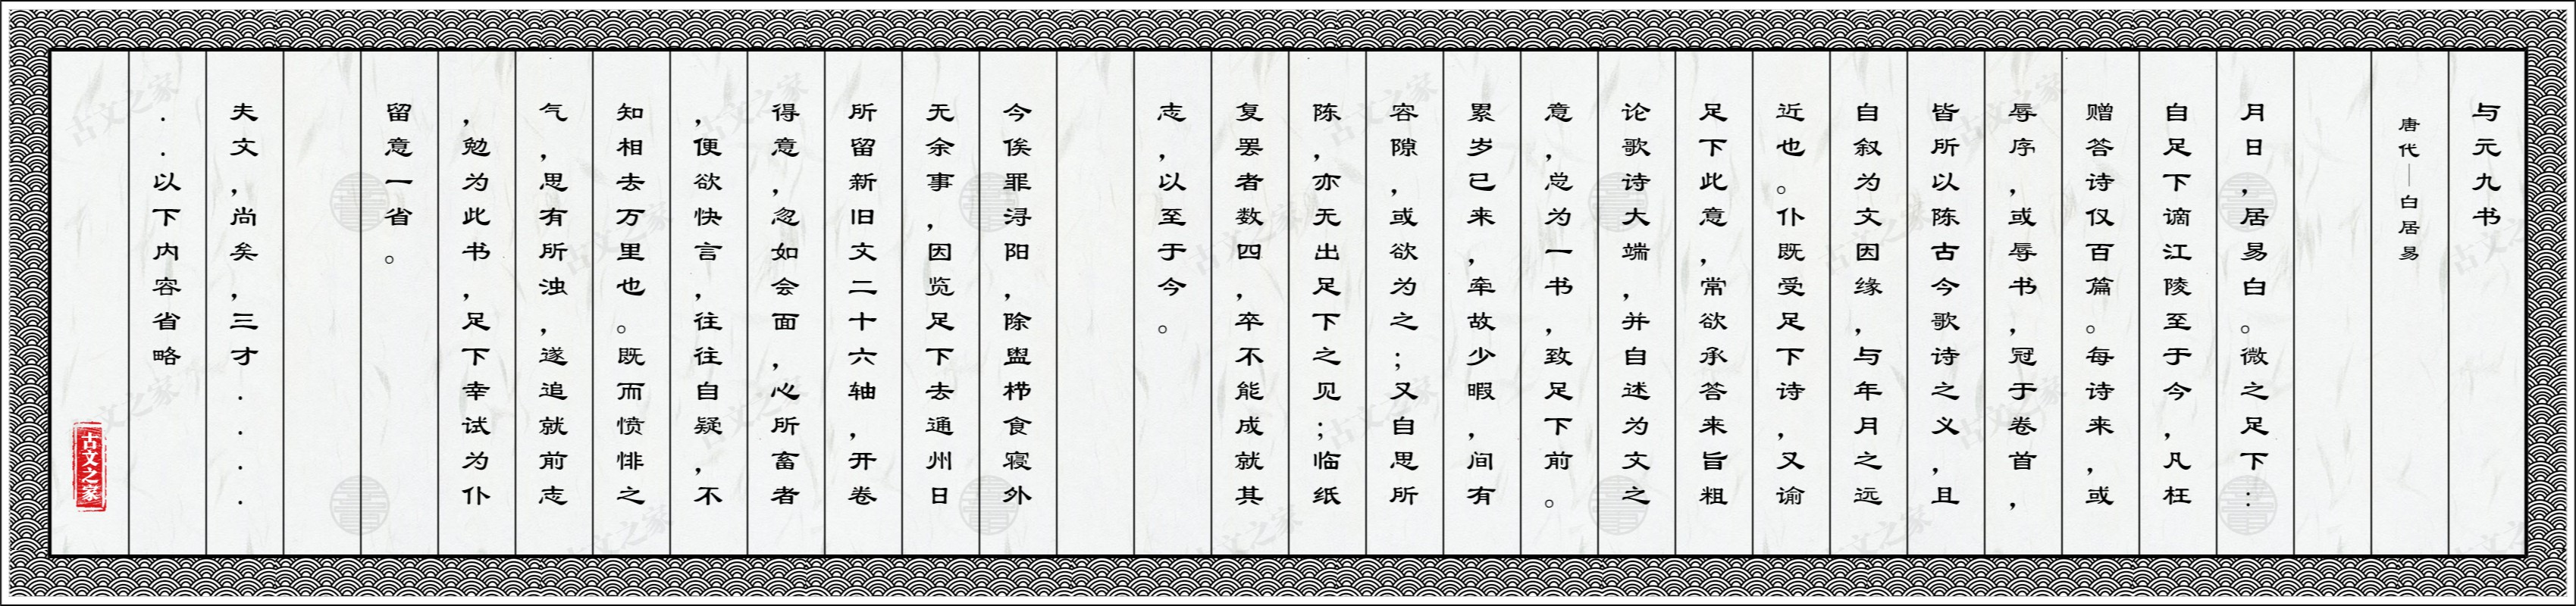 与元九书
唐代—白居易
月日，居易白。微之足下：
自足下谪江陵至于今，凡枉
赠答诗仅百篇。每诗来，或
辱序，或辱书，冠于卷首，
皆所以陈古今歌诗之义，且
自叙为文因缘，与年月之远
近也。仆既受足下诗，又谕
足下此意，常欲承答来旨粗
论歌诗大端，并自述为文之
意，总为一书，致足下前。
累岁已来，牵故少暇，间有
容隙，或欲为之；又自思所
陈，亦无出足下之见；临纸
复罢者数四，卒不能成就其
志，以至于今。
今俟罪浔阳，除盥栉食寝外
无余事，因览足下去通州日
所留新旧文二十六轴，开卷
得意，忽如会面，心所畜者
，便欲快言，往往自疑，不
知相去万里也。既而愤悱之
气，思有所浊，遂追就前志
，勉为此书，足下幸试为仆
留意一省。
夫文，尚矣，三才....
..以下内容省略
古文之家